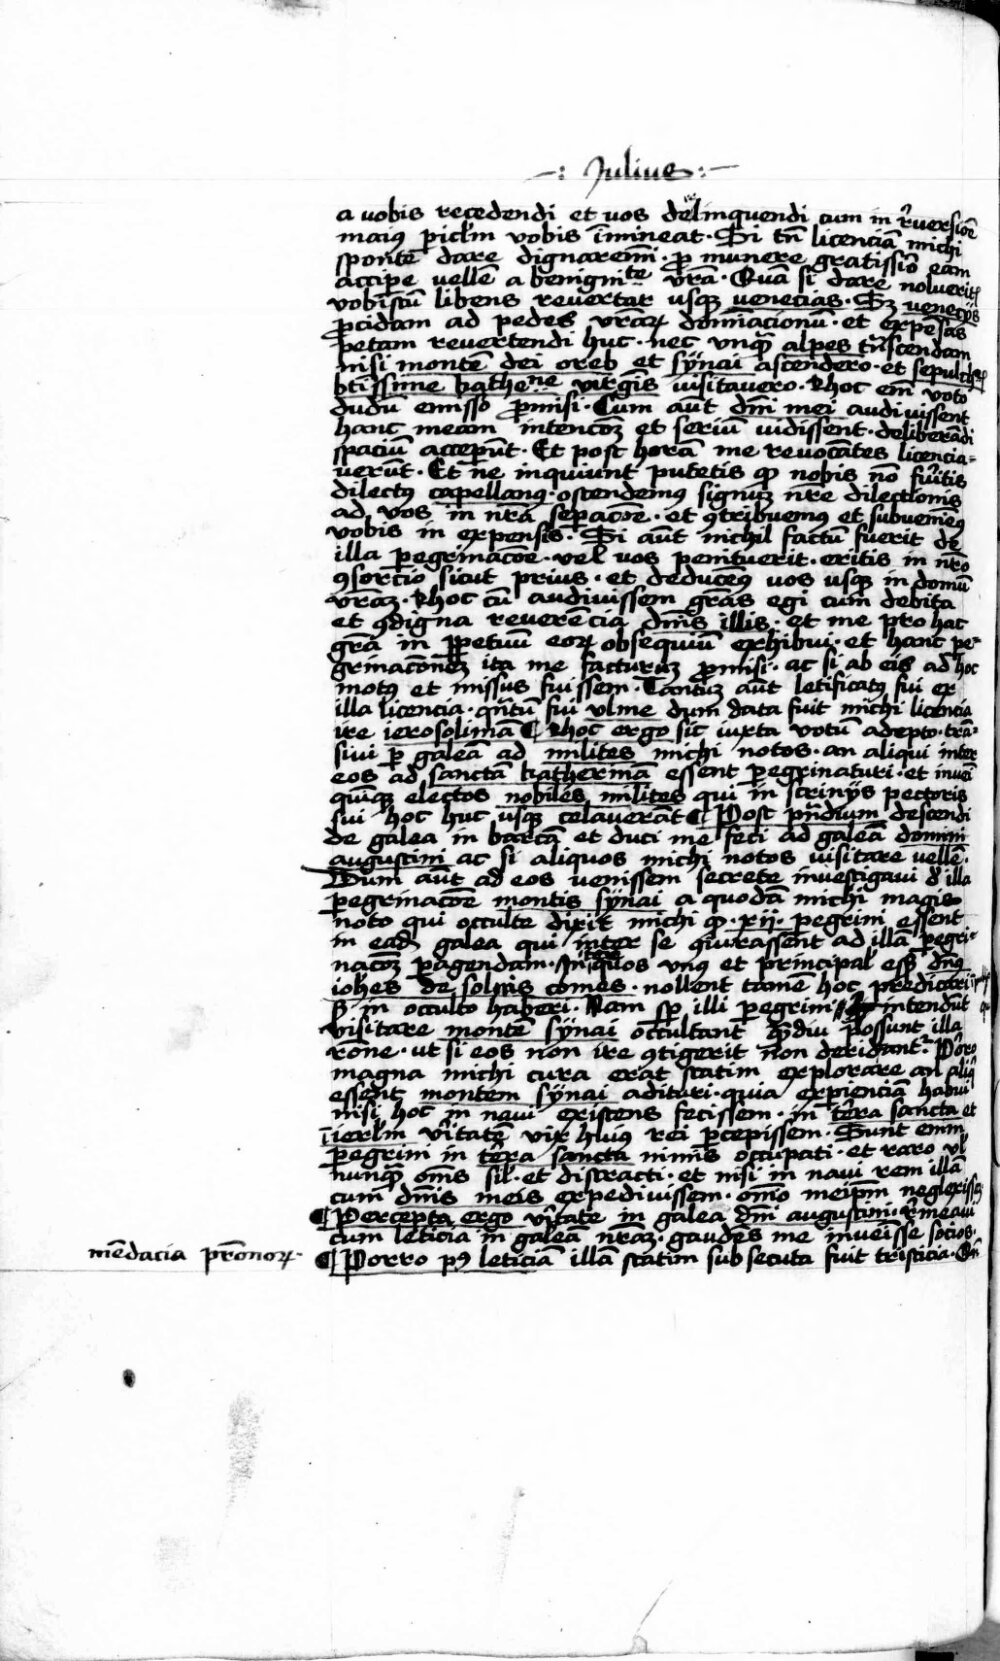 -: Julius :-
a vobis recedendi et vos delinquendi cum in rͥversiōe
maiꝰ piclm vobis īmineat. Si tn̄ licenciā michi
sponte dare dignaremī. p munere gratissīo eam
accipe vellē a benignite vrā. Quā si dare nolueritꝭ
vobiscū libens revertar usqꝫ venecias. Sꝫ venecijs
pcidam ad pedes vrarꝝ dominacionū. et expēsas
petam revertendi huc. nec unqᷓ alpes trͣscendam
nisi montē dei oreb et sÿnai ascendero. et sepulchꝝ
btissime katherine virgis visitavero. hoc em̄ voto
dudū emisso pmisi. Cum aūt dn̄i mei audivissent
hanc meam intencōꝫ et seriū vidissent. deliberādi
spaciū acceperūt. Et post horā me revocātes licencia-
verūt. Et ne inquiunt putetis qͦ nobis nō fuͥtis
dilectꝰ capellanꝰ. ostendemꝰ signūꝫ nr̄e dilectionis
ad vos in nr̄a sepacōe. et ꝯtribuemꝰ et subueniēꝰ
vobis in expensis. Si aūt nichil factū fuerit de
illa pegrinacōe. vel vos penituerit. eritis in nr̄o
ꝯsorcio sicut prius. et deducēꝰ vos usqꝫ in domū
vrāꝫ. hoc cū audivissem grās egi cum debita
et ꝯdigna reverēcia dn̄is illis. et me pro hac
grā in ppetuū eorꝝ obsequiū exhibui. et hanc pe-
grinacōnēꝫ ita me facturūꝫ pmisi. ac si ab eis ad hoc
motꝰ et missus fuissem. Tantūꝫ aūt letificatꝰ fui ex
illa licencia. qntū fui ulme dum data fuit michi licencia
ire ierosolimā ¶ hoc ergo sic iuxta votū adepto. trā-
sivi p galeā ad milites michi notos. an aliqui inter
eos ad sanctā katherinā essent pegrinaturi. et inveī
quīqꝫ electos nobiles milites qui in scrinÿs pectoris
sui hoc huc usqꝫ celaverāt ¶ Post prͣndium descendi
de galea in barcā et duci me feci ad galeā domini
augustini ac si aliquos michi notos visitare vellē.
Dum aūt ad eos venissem secrete investigavi d illa
pegrinacōe montis sÿnai a quodā michi magis
noto qui occulte dixit michi qͦ .xij. pegrini essent
in eadꝫ galea qui inter se giurassent ad illā pegri-
nacōꝫ pagendam. Inter quos unꝰ et principal esꝫ dn̄s
iohēs de solms comes. nollent tamē hoc predicari
sꝫ in occulto haberi. Nam sp illi pegrini qui intendūt
visitare montē sÿnai occultant qᷓdiu possunt illa
rōne. ut si eos non ire ꝯtigerit non derideant. Porro
magna michi cura erat statim explorare an aliqͥ
essent montem sÿnai adituri. quia expienciā habui
nisi hoc in navi existens fecissem. in terra sancta et
iierl̄m vͥtatē vix huius rei pcepissem. Sunt enim
pegrini in terra sancta nimis occupati. et raro vl
nunqᷓ oēs sil. et distracti. et nisi in navi rem illā
cum dn̄is meis expedivissem. oīno meipm neglexissē
¶ Percepta ergo vͥtate in galea dn̄i augustini. rͤmeavi
cum leticia in galeā nr̄aꝫ. gaudēs me invenisse socios.
¶ Porro pꝰ leticiā illā statim subsecuta fuit tristicia.
mēdacia pr̄onorꝝ.